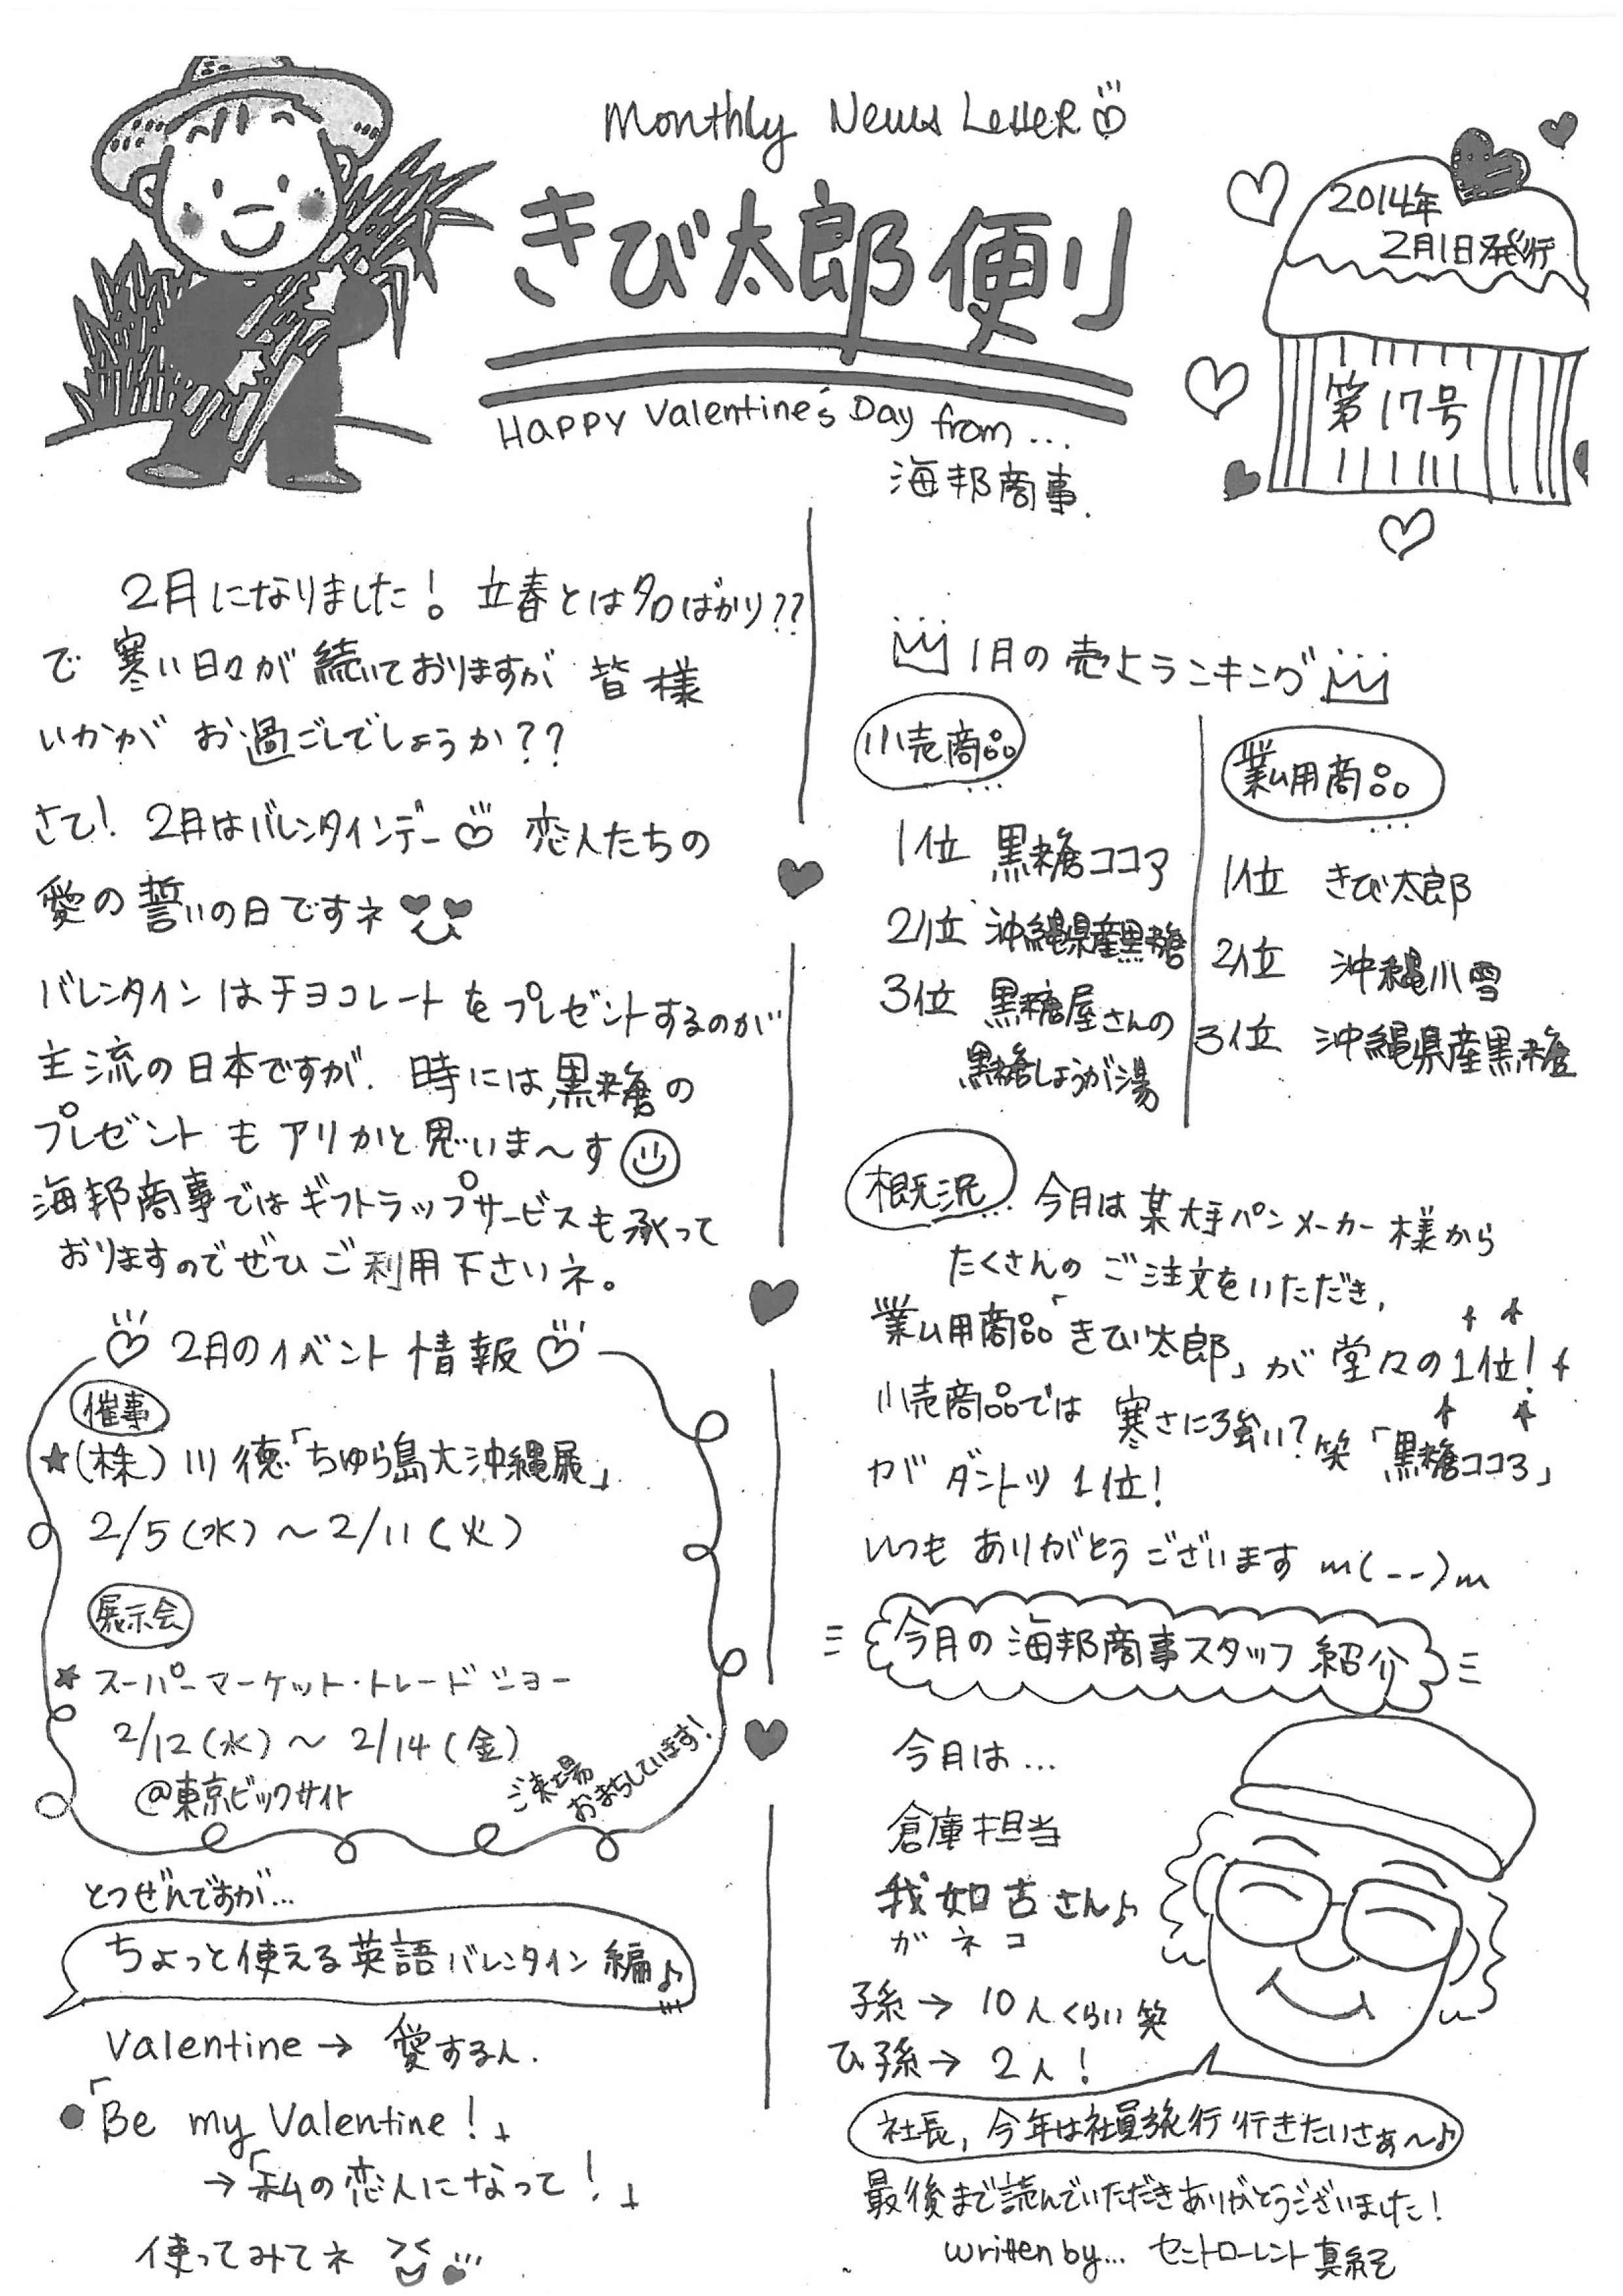 Monthly News Letter
きび太郎便り
Happy Valentine's Day from...
海邦商事.
2014年
2月1日発行
第17号
2月になりました! 立春とは名ばかり??
で 寒い日々が 続いておりますが 皆様
いかが お過ごしでしょうか??
さて! 2月はバレンタインデー 恋人たちの
愛の誓いの日ですネ
バレンタインはチョコレートをプレゼントするのが
主流の日本ですが、時には黒糖の
プレゼントもアリかと思いま〜す
海邦商事ではギフトラップサービスも承って
おりますのでぜひご利用下さいネ。
2月のイベント情報
催事
★(株)川徳「ちゅら島大沖縄展」
2/5(水)〜2/11(火)
展示会
★スーパーマーケット・トレードショー
2/12(水)〜 2/14(金)
@東京ビックサイト
ご来場
おまちしています!
とつぜんですが...
ちょっと使える英語バレンタイン編♪
Valentine→ 愛する人.
●「Be my Valentine!」
→「私の恋人になって!」
使ってみてネ
1月の売上ランキング
小売商品
1位 黒糖ココア
2位 沖縄県産黒糖
3位 黒糖屋さんの
黒糖しょうが湯
業ム用商品
1位 きび太郎
2位 沖縄小雪
3位 沖縄県産黒糖
概況 今月は某大手パンメーカー様から
たくさんのご注文をいただき、
業ム用商品「きび太郎」が堂々の1位!
小売商品では 寒さに強い?笑「黒糖ココア」
がダントツ1位!
いつもありがとうございます m(_ _)m
今月の海邦商事スタッフ紹介
今月は...
倉庫担当
我如古さん♪
ガネコ
孫→ 10人くらい笑
ひ孫→ 2人!
社長、今年は社員旅行行きたいさぁ〜♪
最後まで読んでいただきありがとうございました!
written by... セントローレント真紀